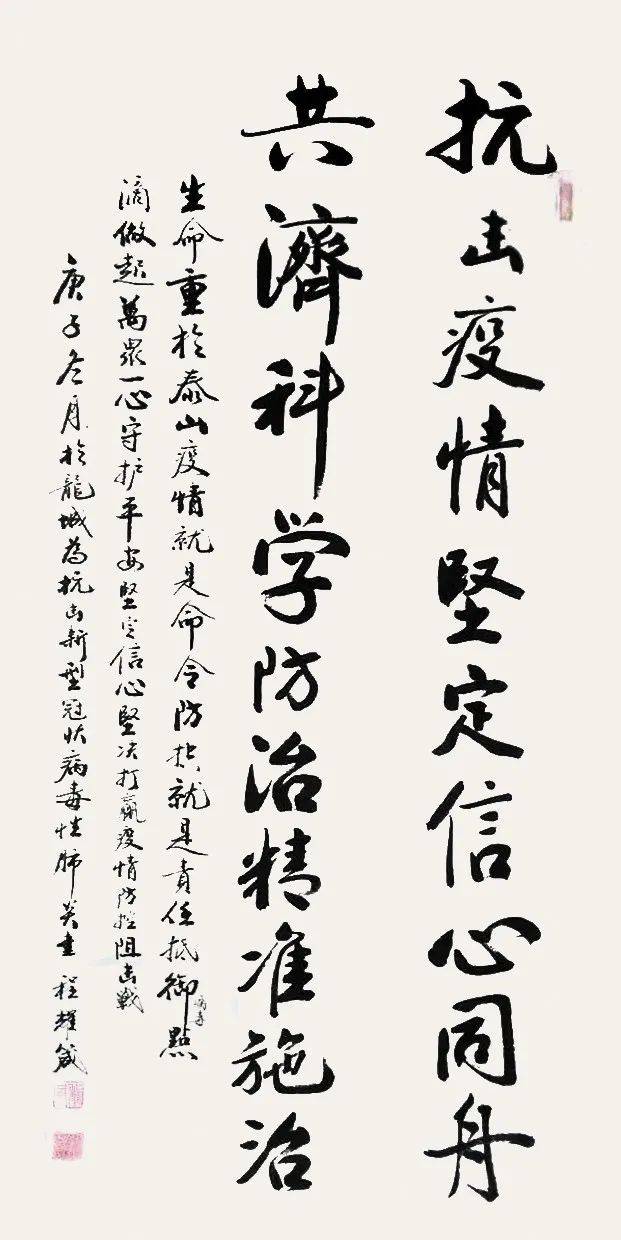 抗击疫情堅定信心同舟
共濟科学防治精准施治
生命重於泰山疫情就是命令防控就是責任抵御病毒點
滴做起萬眾一心守护平安堅定信心堅决打贏疫情防控阻击戰
庚子冬月於龍城為抗击新型冠状病毒性肺炎書 程耀箴